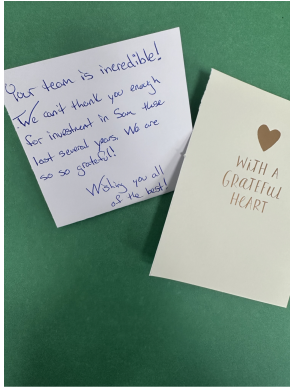 Your team is incredible!
We can't thank you enough
for investment in Sam these
last several years. We are
so so grateful!!
Wishing you all
of the best!
WITH A
GRATEFUL
HEART